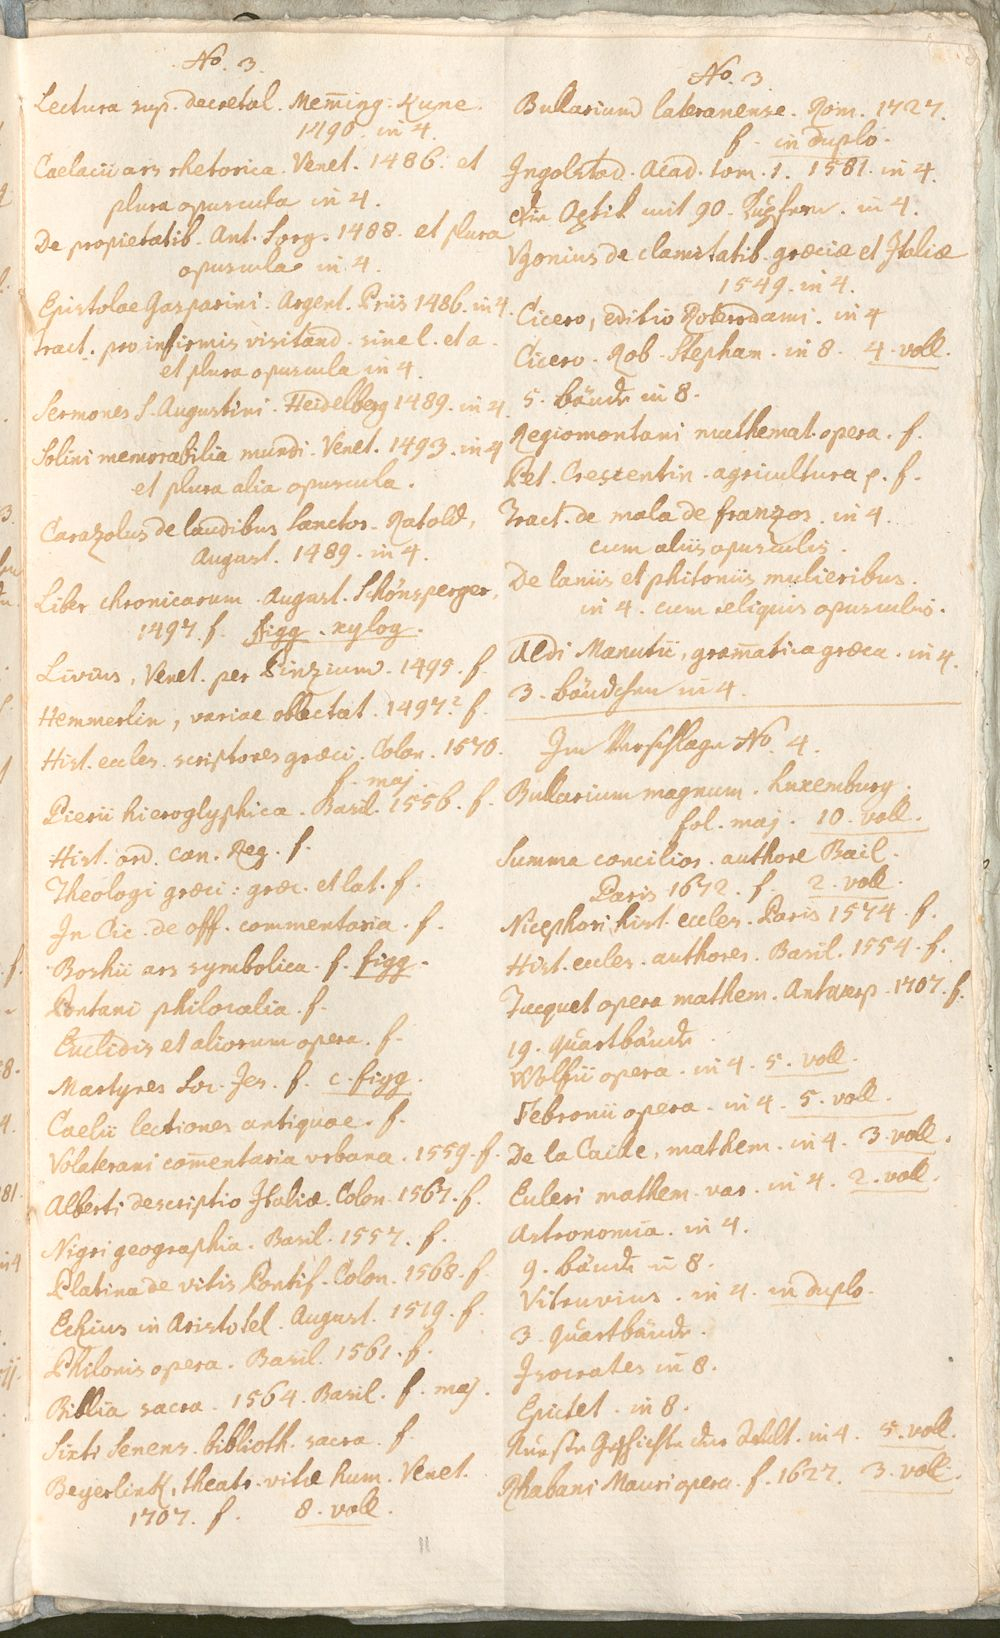 No. 3.
Lectura sup. decretal. Mem̄ing. Kune.
1490. in 4.
Caelacii ars rhetorica. Venet. 1486. et
plura opuscula in 4.
De propietatib. Ant. Sorg. 1488. et plura
opuscula in 4.
Epistolae Gasparini. Argent. Priis 1486. in 4.
tract. pro infirmis visitand. sine l. et a.
et plura opuscula in 4.
Sermones S. Augustini. Heidelberg 1489. in 4.
Solini memorabilia mundi. Venet. 1493. in 4
et plura alia opuscula.
Carazolus de laudibus Sanctor. Ratold,
August. 1489. in 4.
Liber chronicarum. August. Schönsperger,
1497. f. figg. xylog.
Livius, Venet. per Pinzium. 1495. f.
Hemmerlin, variae oblectat. 1497.? f.
Hist. eccles. scriptores græci. Colon. 1570.
f. maj.
Pierii hieroglyphica. Basil. 1556. f.
Hist. ord. can. Reg. f.
Theologi græci: græc. et lat. f.
In Cic. de off. commentaria. f.
Boshii ars symbolica. f. figg.
Pontani philocalia. f.
Euclidis et aliorum opera. f.
Martyres Soc. Jes. f. c. figg.
Caelii lectiones antiquae. f.
Volaterani com̄entaria urbana. 1559. f.
Alberti descriptio Italiæ. Colon. 1567. f.
Nigri geographia. Basil. 1557. f.
Platina de vitis Pontif. Colon. 1568. f.
Eckius in Aristotel. August. 1519. f.
Philonis opera. Basil. 1561. f.
Biblia sacra. 1564. Basil. f. maj.
Sixti Senens. biblioth. sacra. f.
Beyerlink, theatr. vitæ hum. Venet.
1707. f. 8. voll.
No. 3.
Bullarium lateranense. Rom. 1727.
f. in duplo.
Ingolstad. Acad. tom. 1. 1581. in 4.
Die Optik mit 90. Kupfern. in 4.
Ugonius de clamitatib. græciæ et Italiæ
1549. in 4.
Cicero, editio Roterodami. in 4
Cicero. Rob. Stephan. in 8. 4. voll.
5. bände in 8.
Regiomontani mathemat. opera. f.
Pet. Crescentin. agricultura p. f.
Tract. de mala de franzos. in 4.
cum aliis opusculis.
De laniis et phitoniis mulieribus.
in 4. cum reliquis opusculis.
Aldi Manutii, gram̄atica græca. in 4.
3. bändchen in 4.
Im Verschlage No. 4.
Bullarium magnum. Luxemburg.
fol. maj. 10. voll.
Summa concilior. authore Bail.
Paris 1672. f. 2. voll.
Nicephori hist. eccles. Paris 1574. f.
Hist. eccles. authores. Basil. 1554. f.
Tacquet opera mathem. Antwerp. 1707. f.
19. quartbände
Wolfii opera. in 4. 5. voll.
Febronii opera. in 4. 5. voll.
De la Caille, mathem. in 4. 3. voll.
Euleri mathem. var. in 4. 2. voll.
Astronomia. in 4.
9. bände in 8.
Vitruvius. in 4. in duplo.
3. quartbände.
Isocrates in 8.
Epictet. in 8.
Geschichte der in 4. 5. voll.
Rhabani Mauri opera. f. 1627. 3. voll.
11